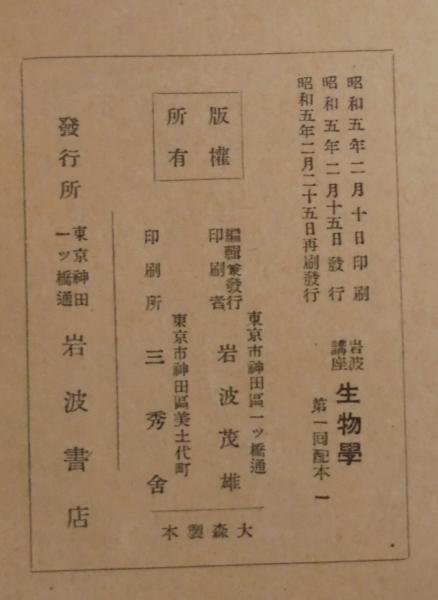 昭和五年二月十日印刷
昭和五年二月十五日發行
昭和五年二月二十五日再刷發行
岩波
講座
生物學
第一回配本一
版權
所有
東京市神田區一ツ橋通
編輯兼發行
印刷者
岩波茂雄
東京市神田區美土代町
印刷所
三秀舍
大森製本
發行所
東京神田
一ツ橋通
岩波書店